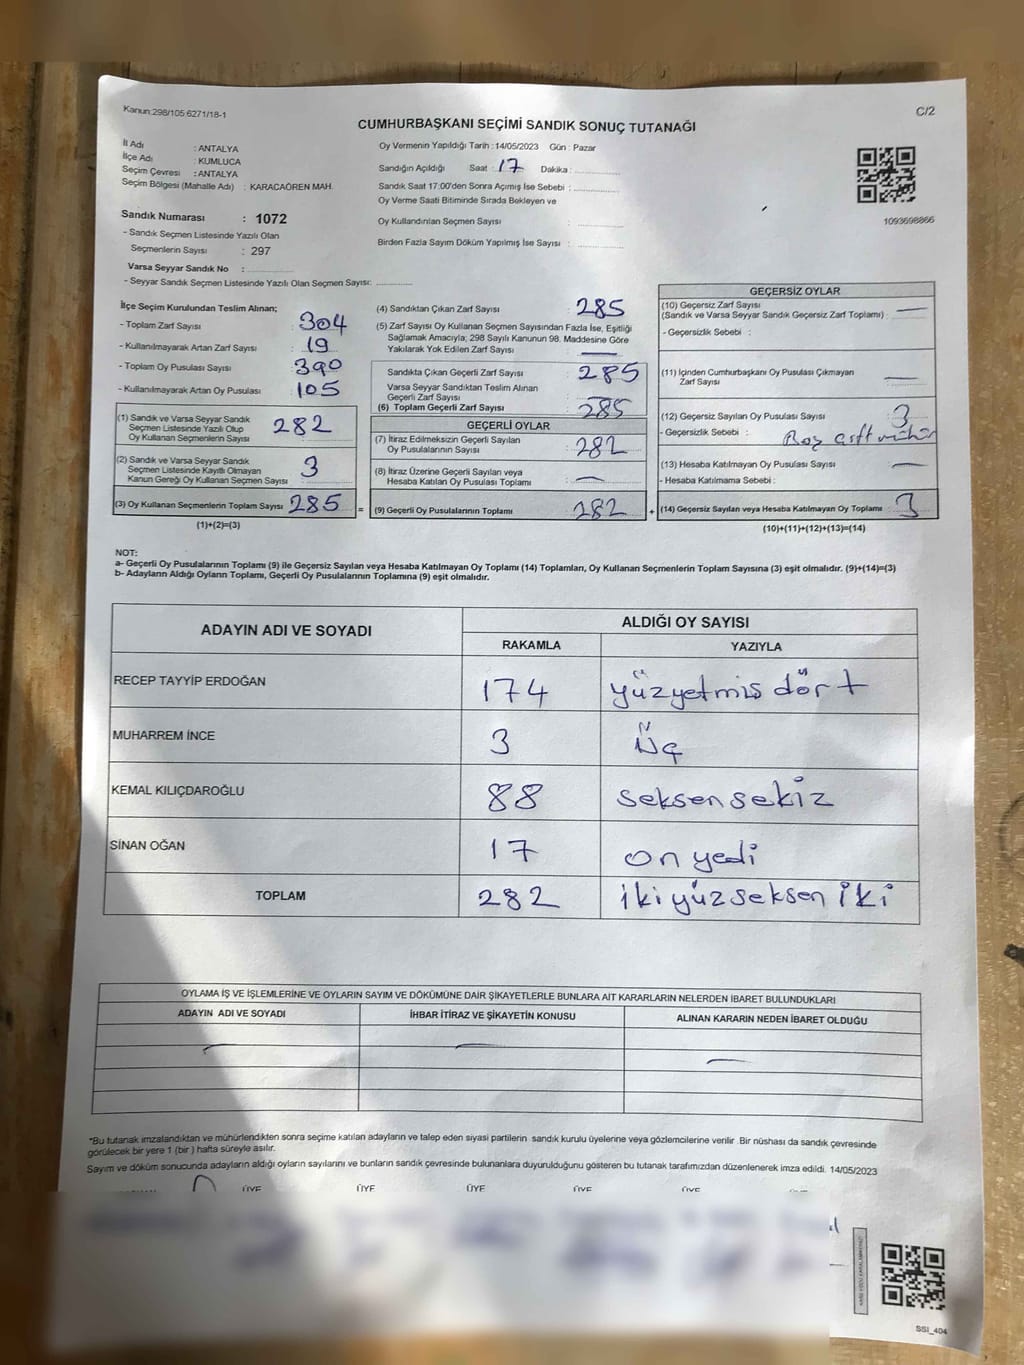 Kanun:298/105 6271/18-1
C/2
CUMHURBAŞKANI SEÇİMİ SANDIK SONUÇ TUTANAĞI
İl Adı : ANTALYA
İlçe Adı : KUMLUCA
Seçim Çevresi : ANTALYA
Seçim Bölgesi (Mahalle Adı) : KARACAÖREN MAH.
Sandık Numarası : 1072
- Sandık Seçmen Listesinde Yazılı Olan
Seçmenlerin Sayısı : 297
Varsa Seyyar Sandık No :
- Seyyar Sandık Seçmen Listesinde Yazılı Olan Seçmen Sayısı:
Oy Vermenin Yapıldığı Tarih : 14/05/2023 Gün : Pazar
Sandığın Açıldığı Saat : 17 Dakika :
Sandık Saat 17:00'den Sonra Açımış İse Sebebi :
Oy Verme Saati Bitiminde Sırada Bekleyen ve
Oy Kullandırılan Seçmen Sayısı :
Birden Fazla Sayım Döküm Yapılmış İse Sayısı :
1093698866
İlçe Seçim Kurulundan Teslim Alınan;
- Toplam Zarf Sayısı : 304
- Kullanılmayarak Artan Zarf Sayısı : 19
- Toplam Oy Pusulası Sayısı : 390
- Kullanılmayarak Artan Oy Pusulası : 105
(1) Sandık ve Varsa Seyyar Sandık
Seçmen Listesinde Yazılı Olup
Oy Kullanan Seçmenlerin Sayısı 282
(2) Sandık ve Varsa Seyyar Sandık
Seçmen Listesinde Kayıtlı Olmayan
Kanun Gereği Oy Kullanan Seçmen Sayısı 3
(3) Oy Kullanan Seçmenlerin Toplam Sayısı 285 =
(1)+(2)=(3)
(4) Sandıktan Çıkan Zarf Sayısı : 285
(5) Zarf Sayısı Oy Kullanan Seçmen Sayısından Fazla İse, Eşitliği
Sağlamak Amacıyla; 298 Sayılı Kanunun 98. Maddesine Göre
Yakılarak Yok Edilen Zarf Sayısı : —
Sandıkta Çıkan Geçerli Zarf Sayısı : 285
Varsa Seyyar Sandıktan Teslim Alınan
Geçerli Zarf Sayısı : —
(6) Toplam Geçerli Zarf Sayısı : 285
GEÇERLİ OYLAR
(7) İtiraz Edilmeksizin Geçerli Sayılan
Oy Pusulalarının Sayısı : 282
(8) İtiraz Üzerine Geçerli Sayılan veya
Hesaba Katılan Oy Pusulası Toplamı : —
(9) Geçerli Oy Pusulalarının Toplamı : 282 +
GEÇERSİZ OYLAR
(10) Geçersiz Zarf Sayısı
(Sandık ve Varsa Seyyar Sandık Geçersiz Zarf Toplamı) : —
- Geçersizlik Sebebi :
(11) İçinden Cumhurbaşkanı Oy Pusulası Çıkmayan
Zarf Sayısı : —
(12) Geçersiz Sayılan Oy Pusulası Sayısı : 3
- Geçersizlik Sebebi : Boş çift mühür
(13) Hesaba Katılmayan Oy Pusulası Sayısı : —
- Hesaba Katılmama Sebebi :
(14) Geçersiz Sayılan veya Hesaba Katılmayan Oy Toplamı : 3
(10)+(11)+(12)+(13)=(14)
NOT:
a- Geçerli Oy Pusulalarının Toplamı (9) ile Geçersiz Sayılan veya Hesaba Katılmayan Oy Toplamı (14) Toplamları, Oy Kullanan Seçmenlerin Toplam Sayısına (3) eşit olmalıdır. (9)+(14)=(3)
b- Adayların Aldığı Oyların Toplamı, Geçerli Oy Pusulalarının Toplamına (9) eşit olmalıdır.
ADAYIN ADI VE SOYADI ALDIĞI OY SAYISI
RAKAMLA YAZIYLA
RECEP TAYYİP ERDOĞAN 174 yüzyetmiş dört
MUHARREM İNCE 3 üç
KEMAL KILIÇDAROĞLU 88 seksensekiz
SİNAN OĞAN 17 on yedi
TOPLAM 282 ikiyüzseksen iki
OYLAMA İŞ VE İŞLEMLERİNE VE OYLARIN SAYIM VE DÖKÜMÜNE DAİR ŞİKAYETLERLE BUNLARA AİT KARARLARIN NELERDEN İBARET BULUNDUKLARI
ADAYIN ADI VE SOYADI İHBAR İTİRAZ VE ŞİKAYETİN KONUSU ALINAN KARARIN NEDEN İBARET OLDUĞU
— — —
*Bu tutanak imzalandıktan ve mühürlendikten sonra seçime katılan adayların ve talep eden siyasi partilerin sandık kurulu üyelerine veya gözlemcilerine verilir .Bir nüshası da sandık çevresinde
görülecek bir yere 1 (bir ) hafta süreyle asılır.
Sayım ve döküm sonucunda adayların aldığı oyların sayılarını ve bunların sandık çevresinde bulunanlara duyurulduğunu gösteren bu tutanak tarafımızdan düzenlenerek imza edildi. 14/05/2023
ÜYE ÜYE ÜYE ÜYE ÜYE
SSI_404